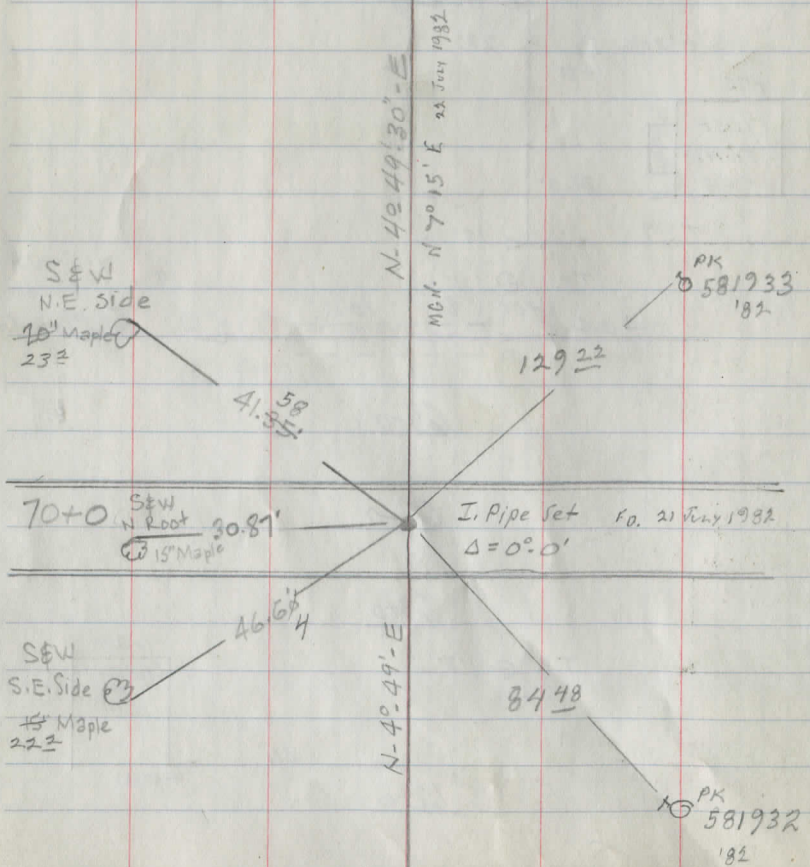 N-4º-49'-30"-E
MGN. N 7º 15' E 22 July 1982
S&W
N.E. Side
20" Maple
23 2
41.35
58
PK
581933
'82
129 22
70+0
S&W
N Root
15" Maple
30.87'
I. Pipe Set
Δ = 0º-0'
FD. 21 July 1982
46.6
4
S&W
S.E. Side
15" Maple
22 2
N-4º-49'-E
84 48
PK
581932
'82